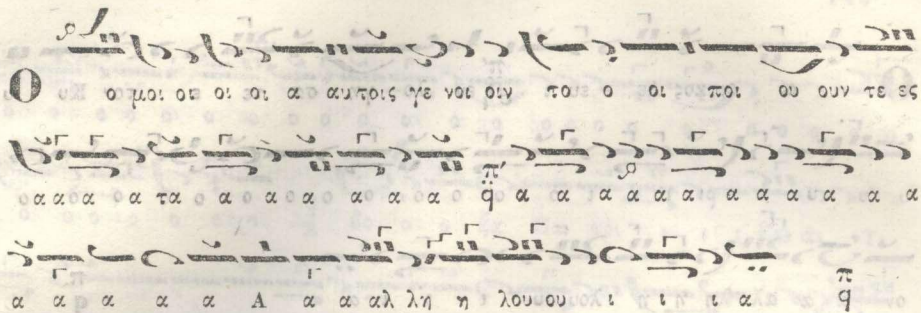 Ο ο μοι οι οι οι α αυτοις γε νοι οιν που ο οι ποι ου ουν τε ες
α α α α α τα α α α α α α α π q α α α α α α α α α α α α α
α α α α α Α α α αλ λη η λου ου ου ι ι ι α π q